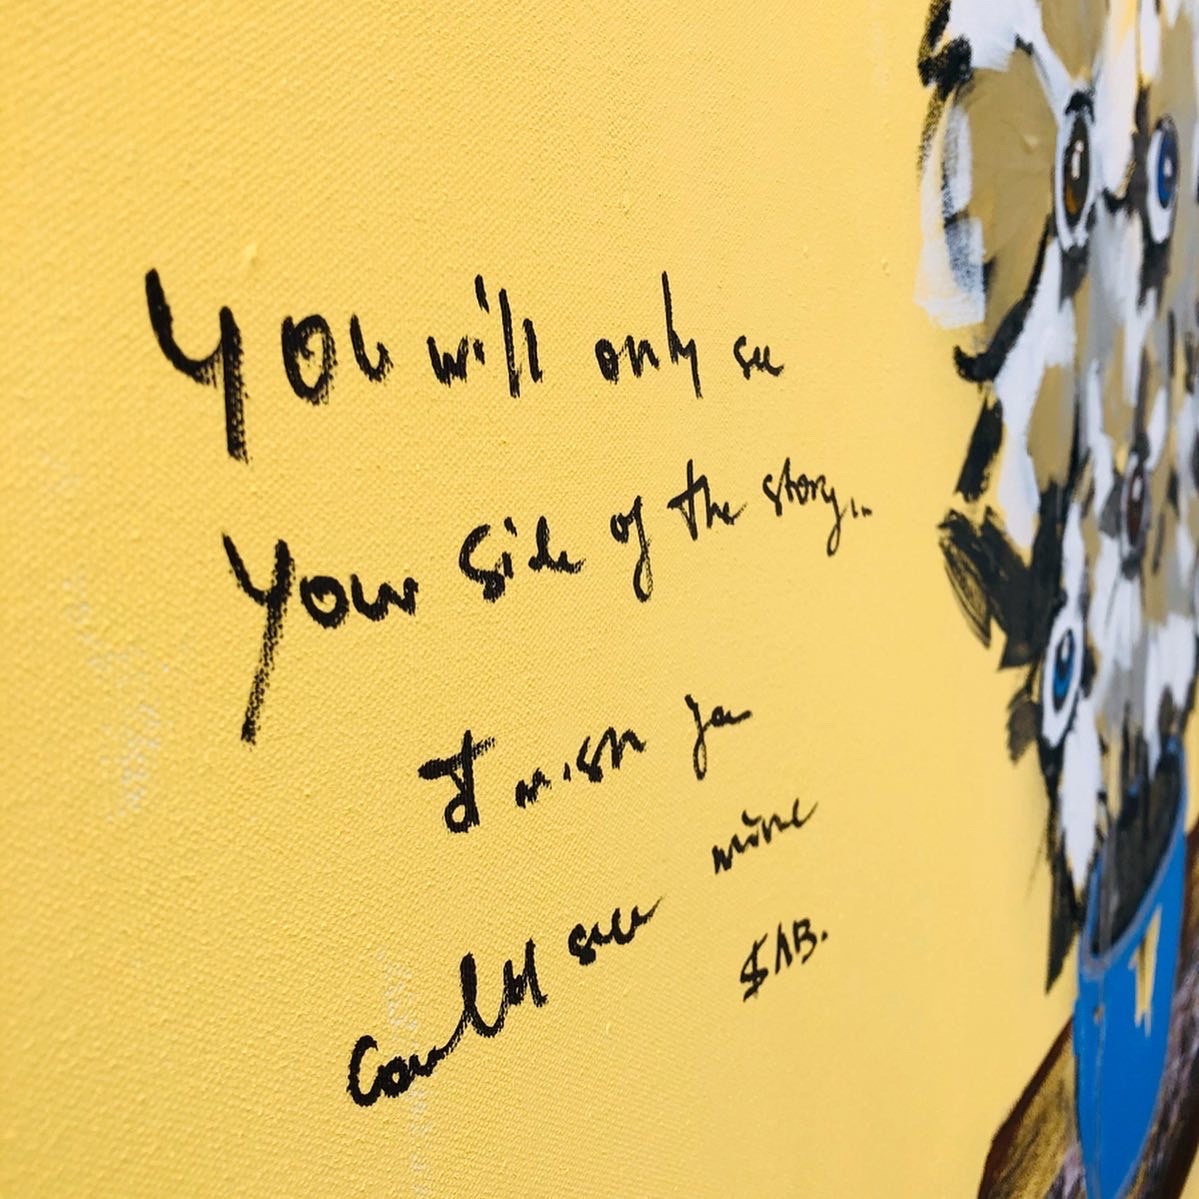 You will only see
your side of the story..
I wish you
could see mine
SAB.